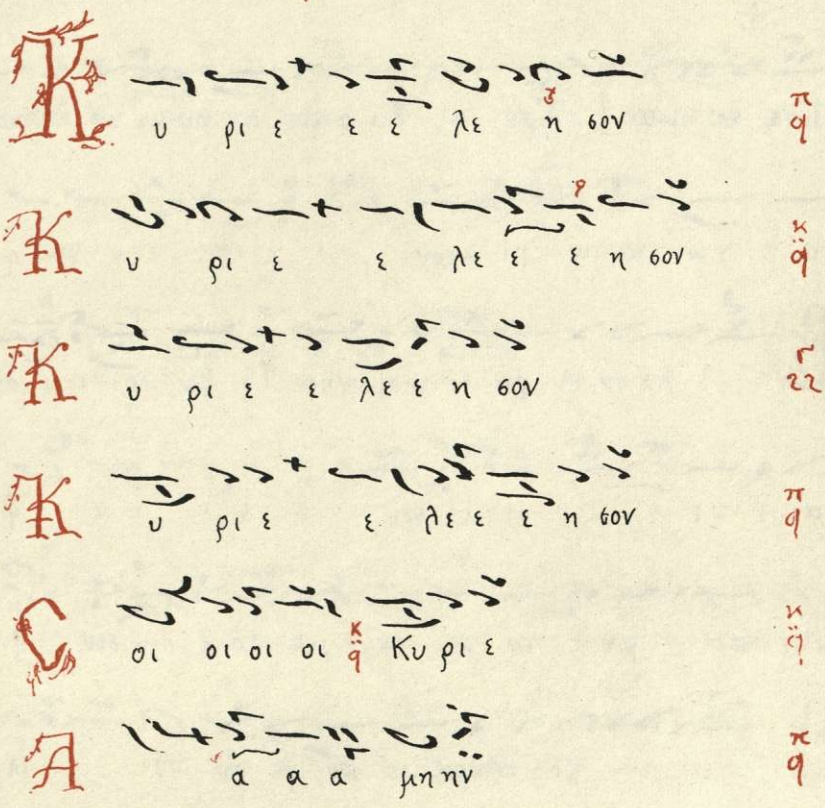 Κ υ ρι ε ε ε λε η σον π q
Κ υ ρι ε ε λε ε ε η σον κ q
Κ υ ρι ε ε λε ε η σον Γ
Κ υ ρι ε ε λε ε ε η σον π q
C οι οι οι οι κ q Κυ ρι ε κ
Α α α α μη ην π q